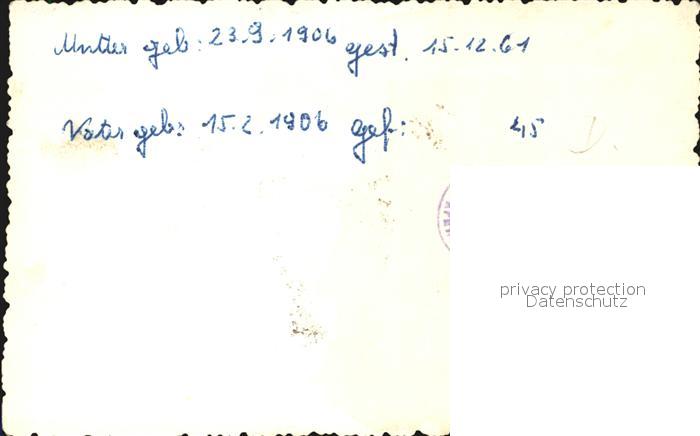 Mutter geb: 23.9.1906 gest. 15.12.61
Vater geb: 15.2.1906 gef: 45
privacy protection
Datenschutz